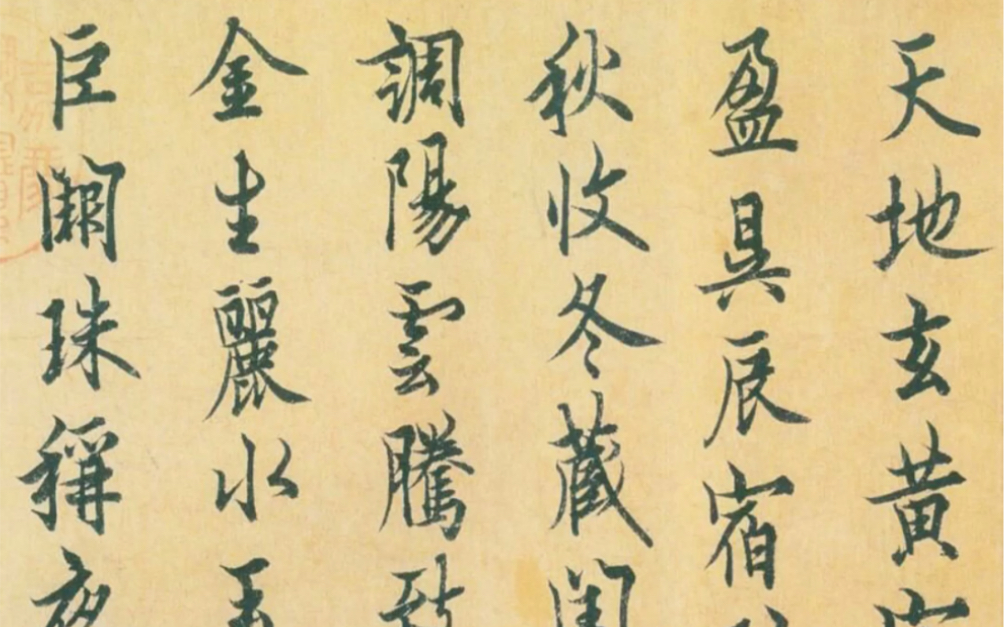 天地玄黃宇
盈昃辰宿
秋收冬藏閏
調陽雲騰致
金生麗水玉
巨闕珠稱夜